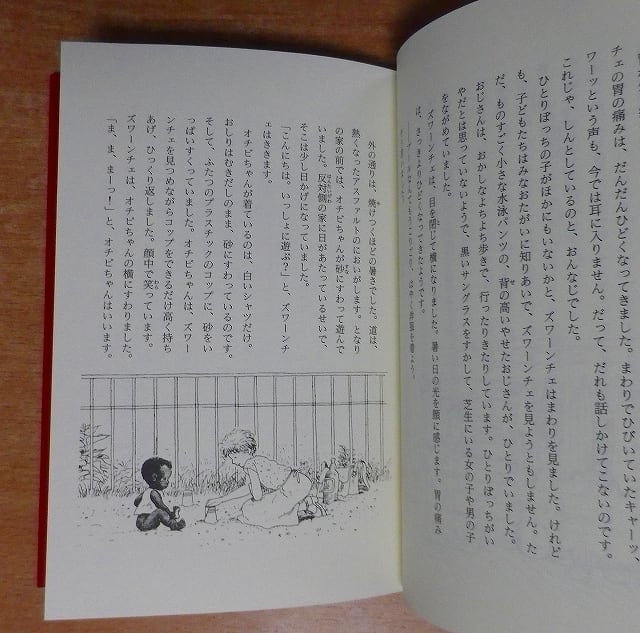 チェの胃の痛みは、だんだんひどくなってきました。まわりでひびいていたキャーッ、
ワーッという声も、今では耳に入りません。だって、だれも話しかけてこないのです。
これじゃ、しんとしているのと、おんなじでした。
ひとりぼっちの子がほかにもいないかと、ズワーンチェはまわりを見ました。けれど
も、子どもたちはみなおたがいに知りあいで、ズワーンチェを見ようともしません。た
だ、ものすごく小さな水泳パンツの、背の高いやせたおじさんが、ひとりでいました。
おじさんは、おかしなよちよち歩きで、行ったりきたりしています。ひとりぼっちがい
やだとは思っていないようで、黒いサングラスをすかして、芝生にいる女の子や男の子
をながめていました。
ズワーンチェは、目を閉じて横になりました。暑い日の光を顔に感じます。胃の痛み
は、さっきよりひどくなってきたようです。
外の通りは、焼けつくほどの暑さでした。道は、
熱くなったアスファルトのにおいがします。となり
の家の前では、オチビちゃんが砂にすわって遊んで
いました。反対側の家に日があたっているせいで、
そこは少し日かげになっていました。
「こんにちは。いっしょに遊ぶ？」と、ズワーンチ
ェはききます。
オチビちゃんが着ているのは、白いシャツだけ。
おしりはむきだしのまま、砂にすわっているのです。
そして、ふたつのプラスチックのコップに、砂をい
っぱいすくっていました。オチビちゃんは、ズワー
ンチェを見つめながらコップをできるだけ高く持ち
あげ、ひっくり返しました。顔中で笑っています。
ズワーンチェは、オチビちゃんの横にすわりました。
「ま、ま、まーっ！」と、オチビちゃんはいいます。